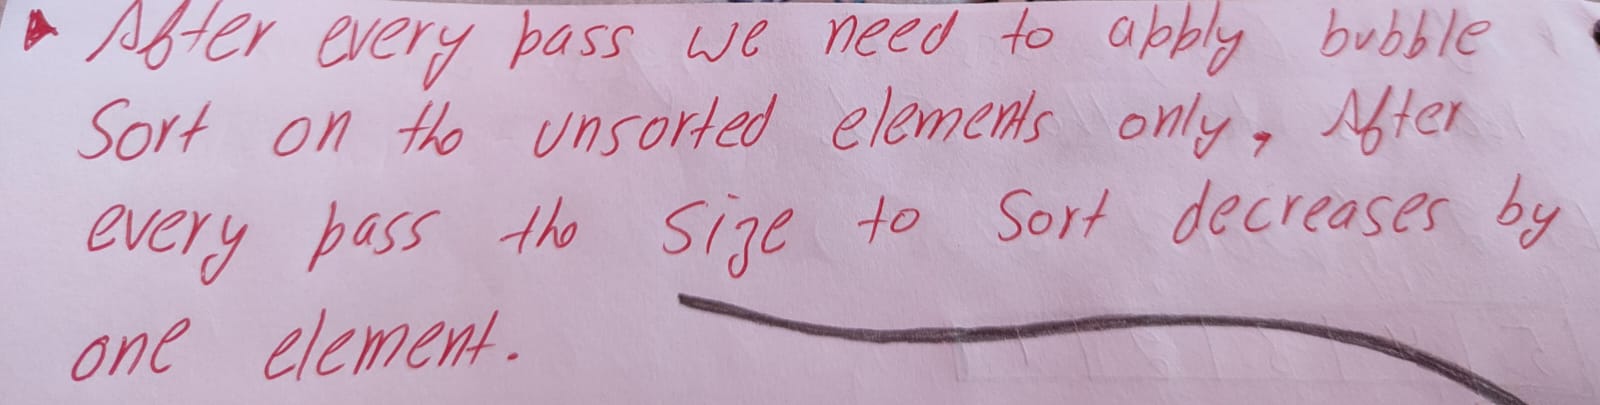 After every pass we need to apply bubble
Sort on the unsorted elements only, After
every pass the Size to Sort decreases by
one element.